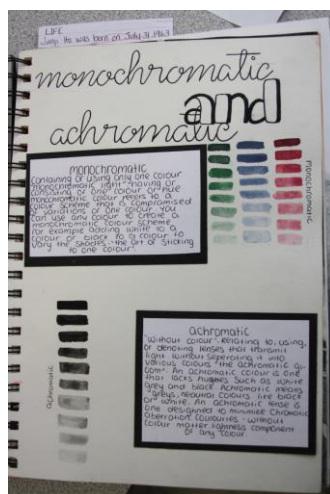 LIFE
Jump. He was born on July 31, 1963
monochromatic
and
achromatic
monochromatic
containing or using only one colour
"monochromatic light" having or
consisting of one colour or hue
monochromatic colour refers to a
colour scheme that is compromised
of variations of one colour. You
can use any colour to create a
monochromatic colour scheme
for example adding white to a
colour or black to a colour to
vary the shades. "the art of sticking
to one colour".
monochromatic
achromatic
achromatic
"without colour". relating to, using,
or denoting lenses that transmit
light without seperating it into
various colours "the achromatic
An achromatic colour is one
that lacks hugnes such as white
grey and black. Achromatic means
greys, neutral colours like black
or white. An achromatic lense is
one designed to minimize chromatic
aberration. - without
colour matter lightness component
of any colour.